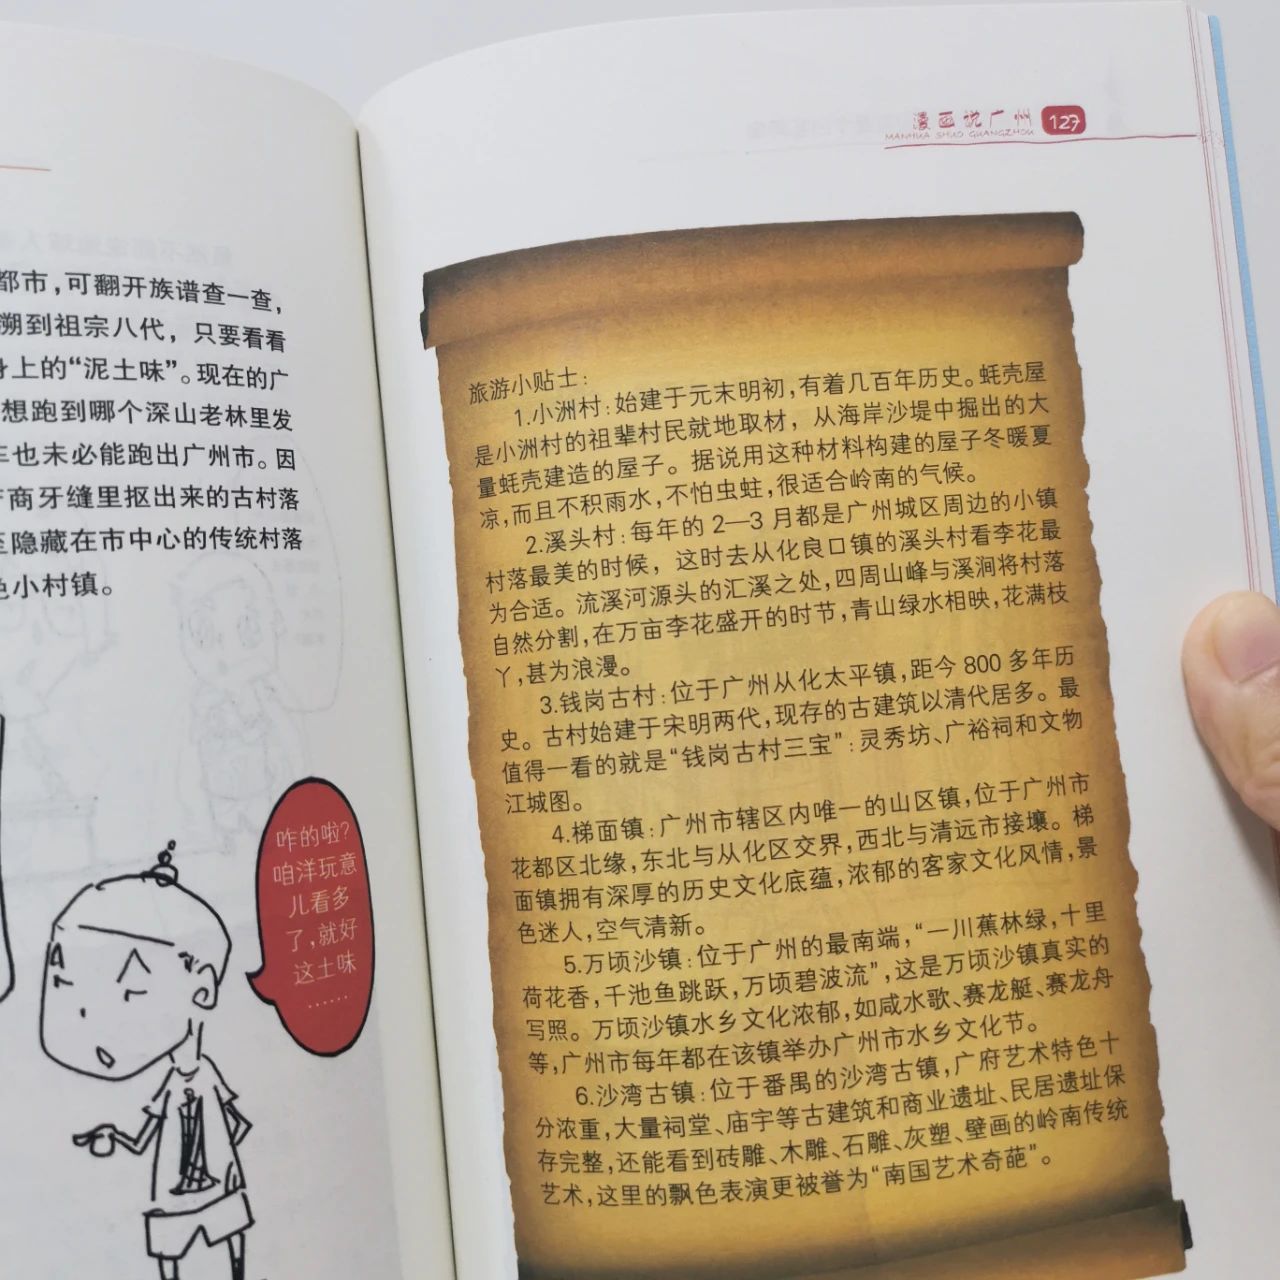 都市,可翻开族谱查一查,
溯到祖宗八代，只要看看
身上的“泥土味”。现在的广
想跑到哪个深山老林里发
车也未必能跑出广州市。因
商牙缝里抠出来的古村落
至隐藏在市中心的传统村落
色小村镇。
咋的啦?
咱洋玩意
儿看多
了,就好
这土味
……
漫画说广州 127
MANHUA SHUO GUANGZHOU
旅游小贴士:
1.小洲村:始建于元末明初,有着几百年历史。蚝壳屋
是小洲村的祖辈村民就地取材，从海岸沙堤中掘出的大
量蚝壳建造的屋子。据说用这种材料构建的屋子冬暖夏
凉,而且不积雨水,不怕虫蛀,很适合岭南的气候。
2.溪头村:每年的2—3月都是广州城区周边的小镇
村落最美的时候，这时去从化良口镇的溪头村看李花最
为合适。流溪河源头的汇溪之处,四周山峰与溪涧将村落
自然分割,在万亩李花盛开的时节,青山绿水相映,花满枝
丫,甚为浪漫。
3.钱岗古村:位于广州从化太平镇,距今800多年历
史。古村始建于宋明两代,现存的古建筑以清代居多。最
值得一看的就是“钱岗古村三宝”:灵秀坊、广裕祠和文物
江城图。
4.梯面镇:广州市辖区内唯一的山区镇,位于广州市
花都区北缘,东北与从化区交界,西北与清远市接壤。梯
面镇拥有深厚的历史文化底蕴,浓郁的客家文化风情,景
色迷人,空气清新。
5.万顷沙镇:位于广州的最南端,“一川蕉林绿,十里
荷花香,千池鱼跳跃,万顷碧波流”,这是万顷沙镇真实的
写照。万顷沙镇水乡文化浓郁,如咸水歌、赛龙艇、赛龙舟
等,广州市每年都在该镇举办广州市水乡文化节。
6.沙湾古镇:位于番禺的沙湾古镇,广府艺术特色十
分浓重,大量祠堂、庙宇等古建筑和商业遗址、民居遗址保
存完整,还能看到砖雕、木雕、石雕、灰塑、壁画的岭南传统
艺术,这里的飘色表演更被誉为“南国艺术奇葩”。